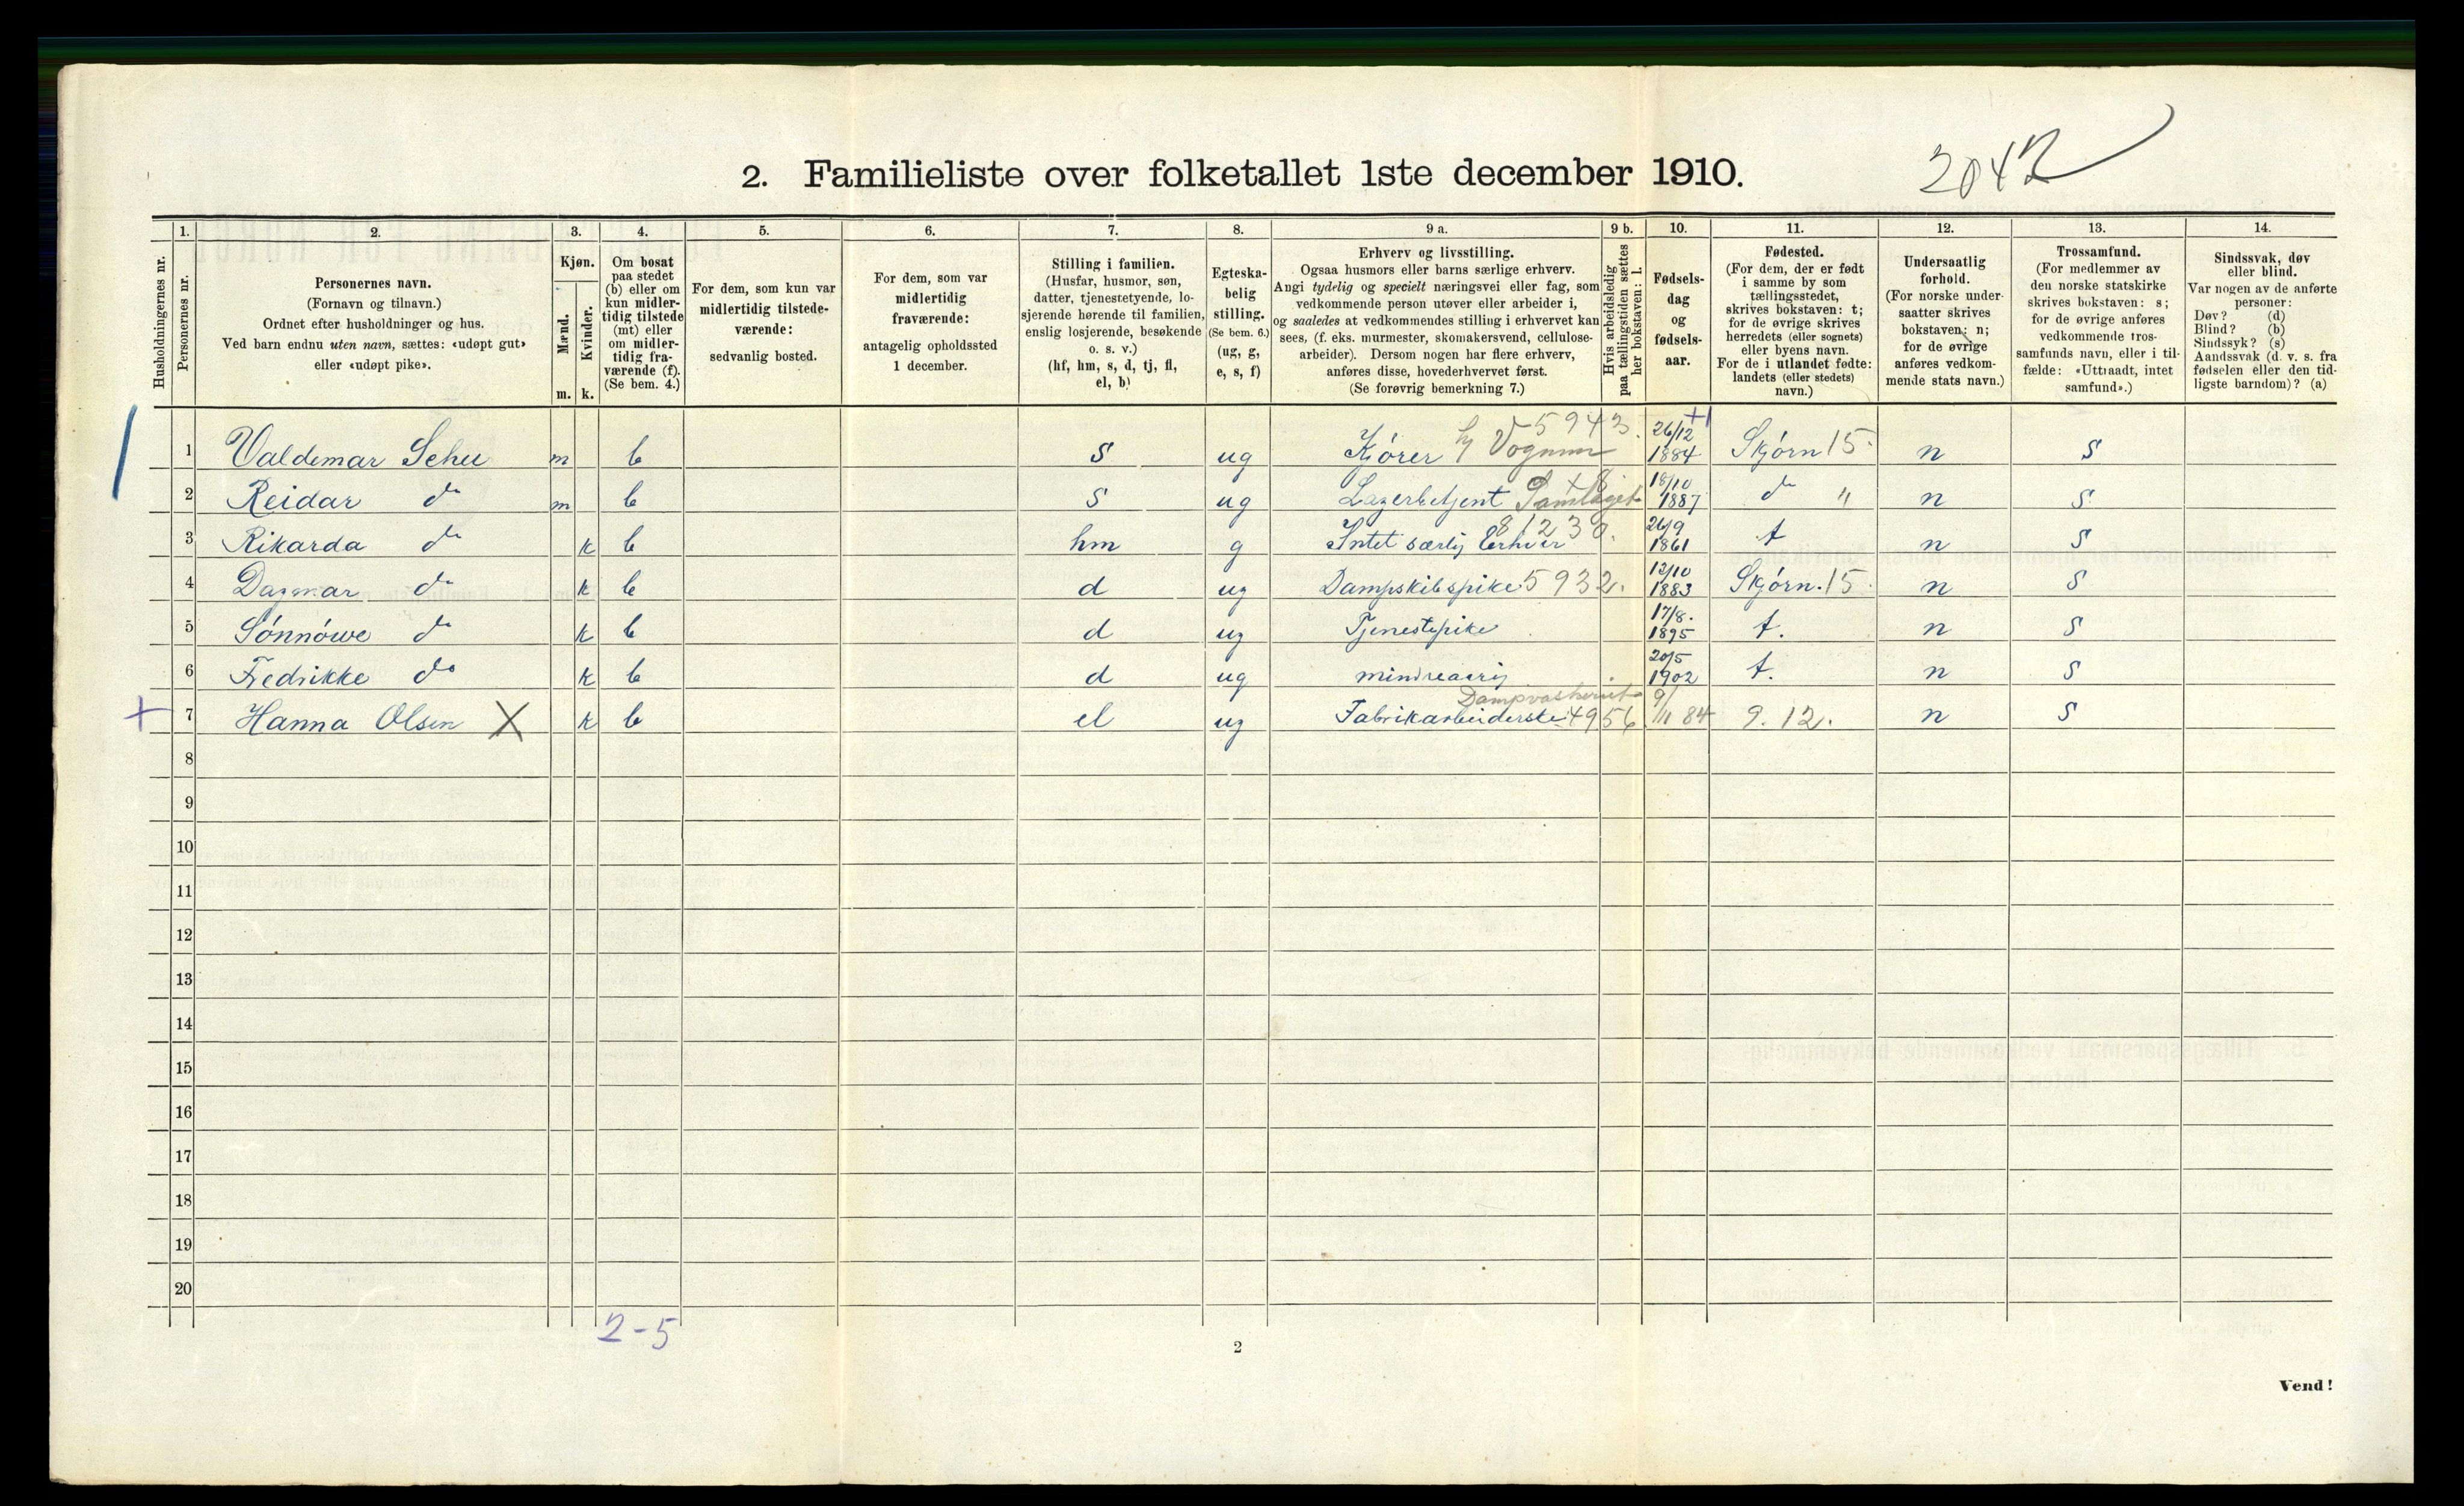 2. Familieliste over folketallet 1ste december 1910.
2042
1. 2. 3. 4. 5. 6. 7. 8. 9 a. 9 b. 10. 11. 12. 13. 14.
Husholdningernes nr.
Personernes nr.
Personernes navn.
(Fornavn og tilnavn.)
Ordnet efter husholdninger og hus.
Ved barn endnu uten navn, sættes: «udøpt gut»
eller «udøpt pike».
Kjøn.
Mænd.
Kvinder.
m. k.
Om bosat
paa stedet
(b) eller om
kun midler-
tidig tilstede
(mt) eller
om midler-
tidig fra-
værende (f).
(Se bem. 4.)
For dem, som kun var
midlertidig tilstede-
værende:
sedvanlig bosted.
For dem, som var
midlertidig
fraværende:
antagelig opholdssted
1 december.
Stilling i familien.
(Husfar, husmor, søn,
datter, tjenestetyende, lo-
sjerende hørende til familien,
enslig losjerende, besøkende
o. s. v.)
(hf, hm, s, d, tj, fl,
el, b)
Egteska-
belig
stilling.
(Se bem. 6.)
(ug, g,
e, s, f)
Erhverv og livsstilling.
Ogsaa husmors eller barns særlige erhverv.
Angi tydelig og specielt næringsvei eller fag, som
vedkommende person utøver eller arbeider i,
og saaledes at vedkommendes stilling i erhvervet kan
sees, (f. eks. murmester, skomakersvend, cellulose-
arbeider). Dersom nogen har flere erhverv,
anføres disse, hovederhvervet først.
(Se forøvrig bemerkning 7.)
Hvis arbeidsledig
paa tællingstiden sættes
her bokstaven: l.
Fødsels-
dag
og
fødsels-
aar.
Fødested.
(For dem, der er født
i samme by som
tællingsstedet,
skrives bokstaven: t;
for de øvrige skrives
herredets (eller sognets)
eller byens navn.
For de i utlandet fødte:
landets (eller stedets)
navn.)
Undersaatlig
forhold.
(For norske under-
saatter skrives
bokstaven: n;
for de øvrige
anføres vedkom-
mende stats navn.)
Trossamfund.
(For medlemmer av
den norske statskirke
skrives bokstaven: s;
for de øvrige anføres
vedkommende tros-
samfunds navn, eller i til-
fælde: «Uttraadt, intet
samfund».)
Sindssvak, døv
eller blind.
Var nogen av de anførte
personer:
Døv? (d)
Blind? (b)
Sindssyk? (s)
Aandssvak (d. v. s. fra
fødselen eller den tid-
ligste barndom)? (a)
1 Valdemar Schu m b s ug Kjører 5943. 26/12 1884 Skjørn 15 n s
2 Reidar do m b s ug Lagerbetjent Samlaget 18/10 1887 do " n s
3 Rikarda do k b hm g Intet særlig Erhver 81230. 26/9 1861 t n s
4 Dagmar do k b d ug Dampskibspike 5932. 12/10 1883 Skjørn. 15 n s
5 Sønnøwe do k b d ug Tjenestepike 17/8. 1895 t. n s
6 Fredrikke do k b d ug mindreaarig 20/5 1902 t. n s
Dampvaskeriet
+ 7 Hanna Olsen X k b el ug Fabrikarbeiderske 4956 9/11 84 9. 12. n s
8
9
10
11
12
13
14
15
16
17
18
19
20
2-5
2
Vend!